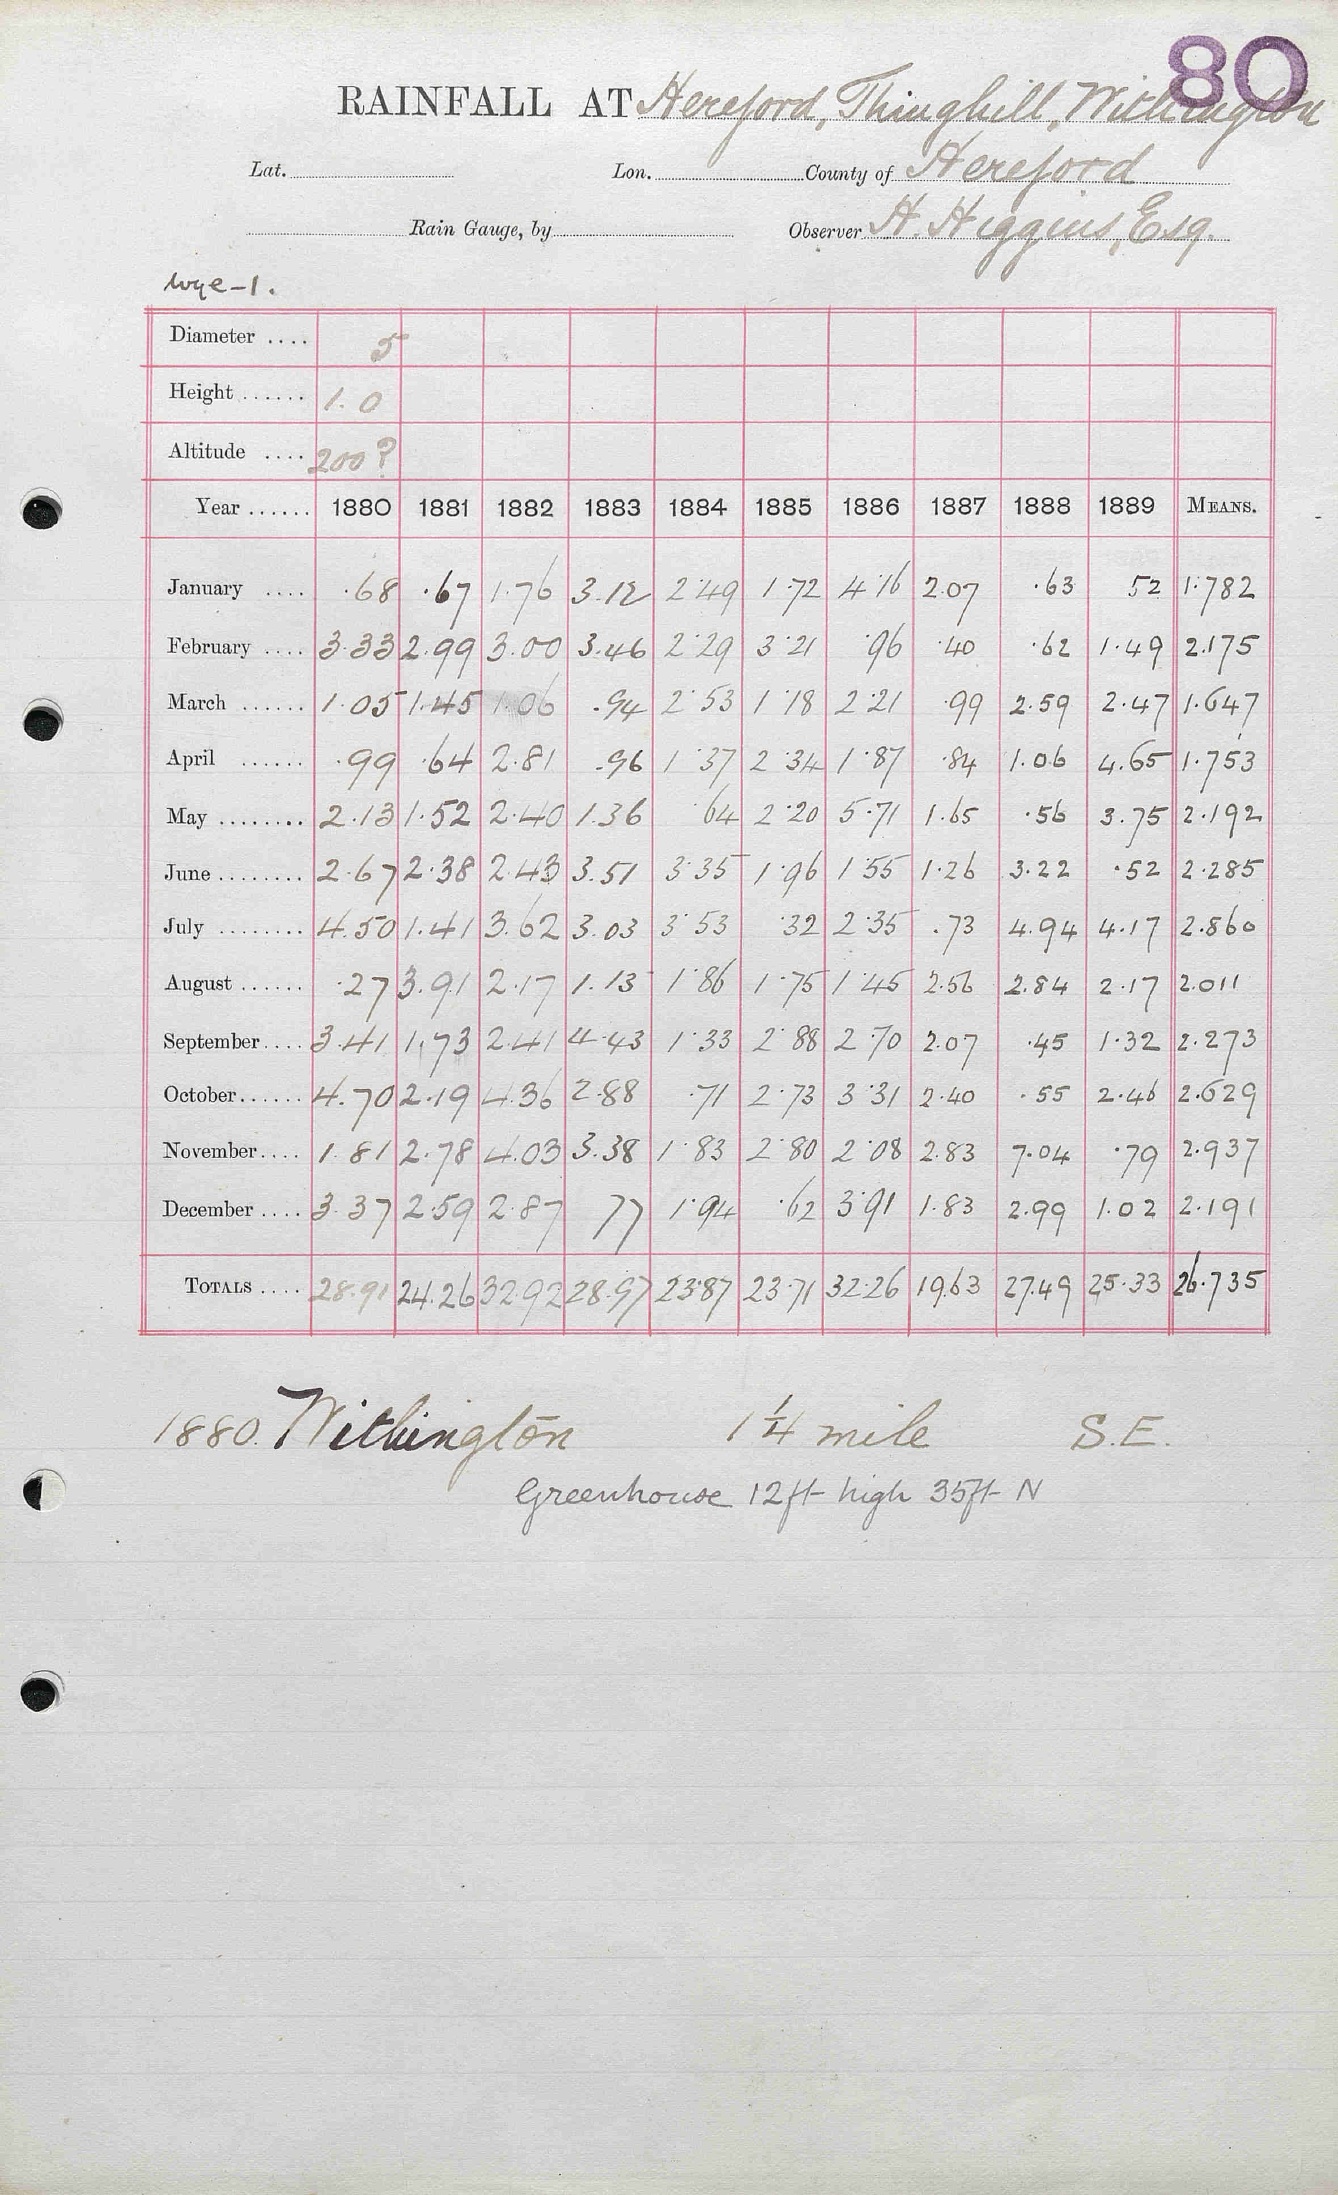 80
RAINFALL AT Hereford, Thinghill, Withington
Lat. Lon. County of Hereford
Rain Gauge, by Observer H. Higgins, Esq.
Wye-1.
Diameter .... 5
Height ...... 1.0
Altitude .... 200?
Year ...... 1880 1881 1882 1883 1884 1885 1886 1887 1888 1889 MEANS.
January .... .68 .67 1.76 3.12 2.49 1.72 4.16 2.07 .63 52 1.782
February .... 3.33 2.99 3.00 3.46 2.29 3.21 .96 .40 .62 1.49 2.175
March ...... 1.05 1.45 1.06 .94 2.53 1.18 2.21 .99 2.59 2.47 1.647
April ...... .99 .64 2.81 .96 1.37 2.34 1.87 .84 1.06 4.65 1.753
May ........ 2.13 1.52 2.40 1.36 .64 2.20 5.71 1.65 .56 3.75 2.192
June ........ 2.67 2.38 2.43 3.51 3.35 1.96 1.55 1.26 3.22 .52 2.285
July ........ 4.50 1.41 3.62 3.03 3.53 .32 2.35 .73 4.94 4.17 2.860
August ...... .27 3.91 2.17 1.13 1.86 1.75 1.45 2.56 2.84 2.17 2.011
September.... 3.41 1.73 2.41 4.43 1.33 2.88 2.70 2.07 .45 1.32 2.273
October...... 4.70 2.19 4.36 2.88 .71 2.73 3.31 2.40 .55 2.46 2.629
November.... 1.81 2.78 4.03 3.38 1.83 2.80 2.08 2.83 7.04 .79 2.937
December .... 3.37 2.59 2.87 77 1.94 .62 3.91 1.83 2.99 1.02 2.191
TOTALS .... 28.91 24.26 32.92 28.97 23.87 23.71 32.26 19.63 27.49 25.33 26.735
1880. Withington 1 1/4 mile S.E.
Greenhouse 12ft high 35ft N